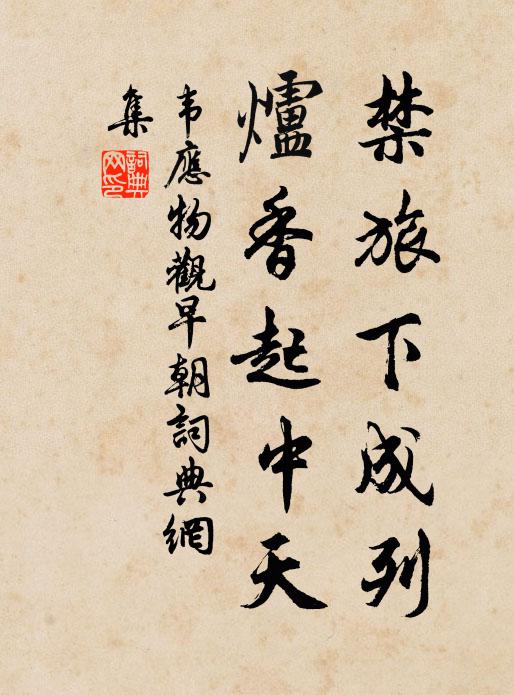 禁旅下成列
爐香起中天
韦應物觀早朝詞典網
集
詞典
网印